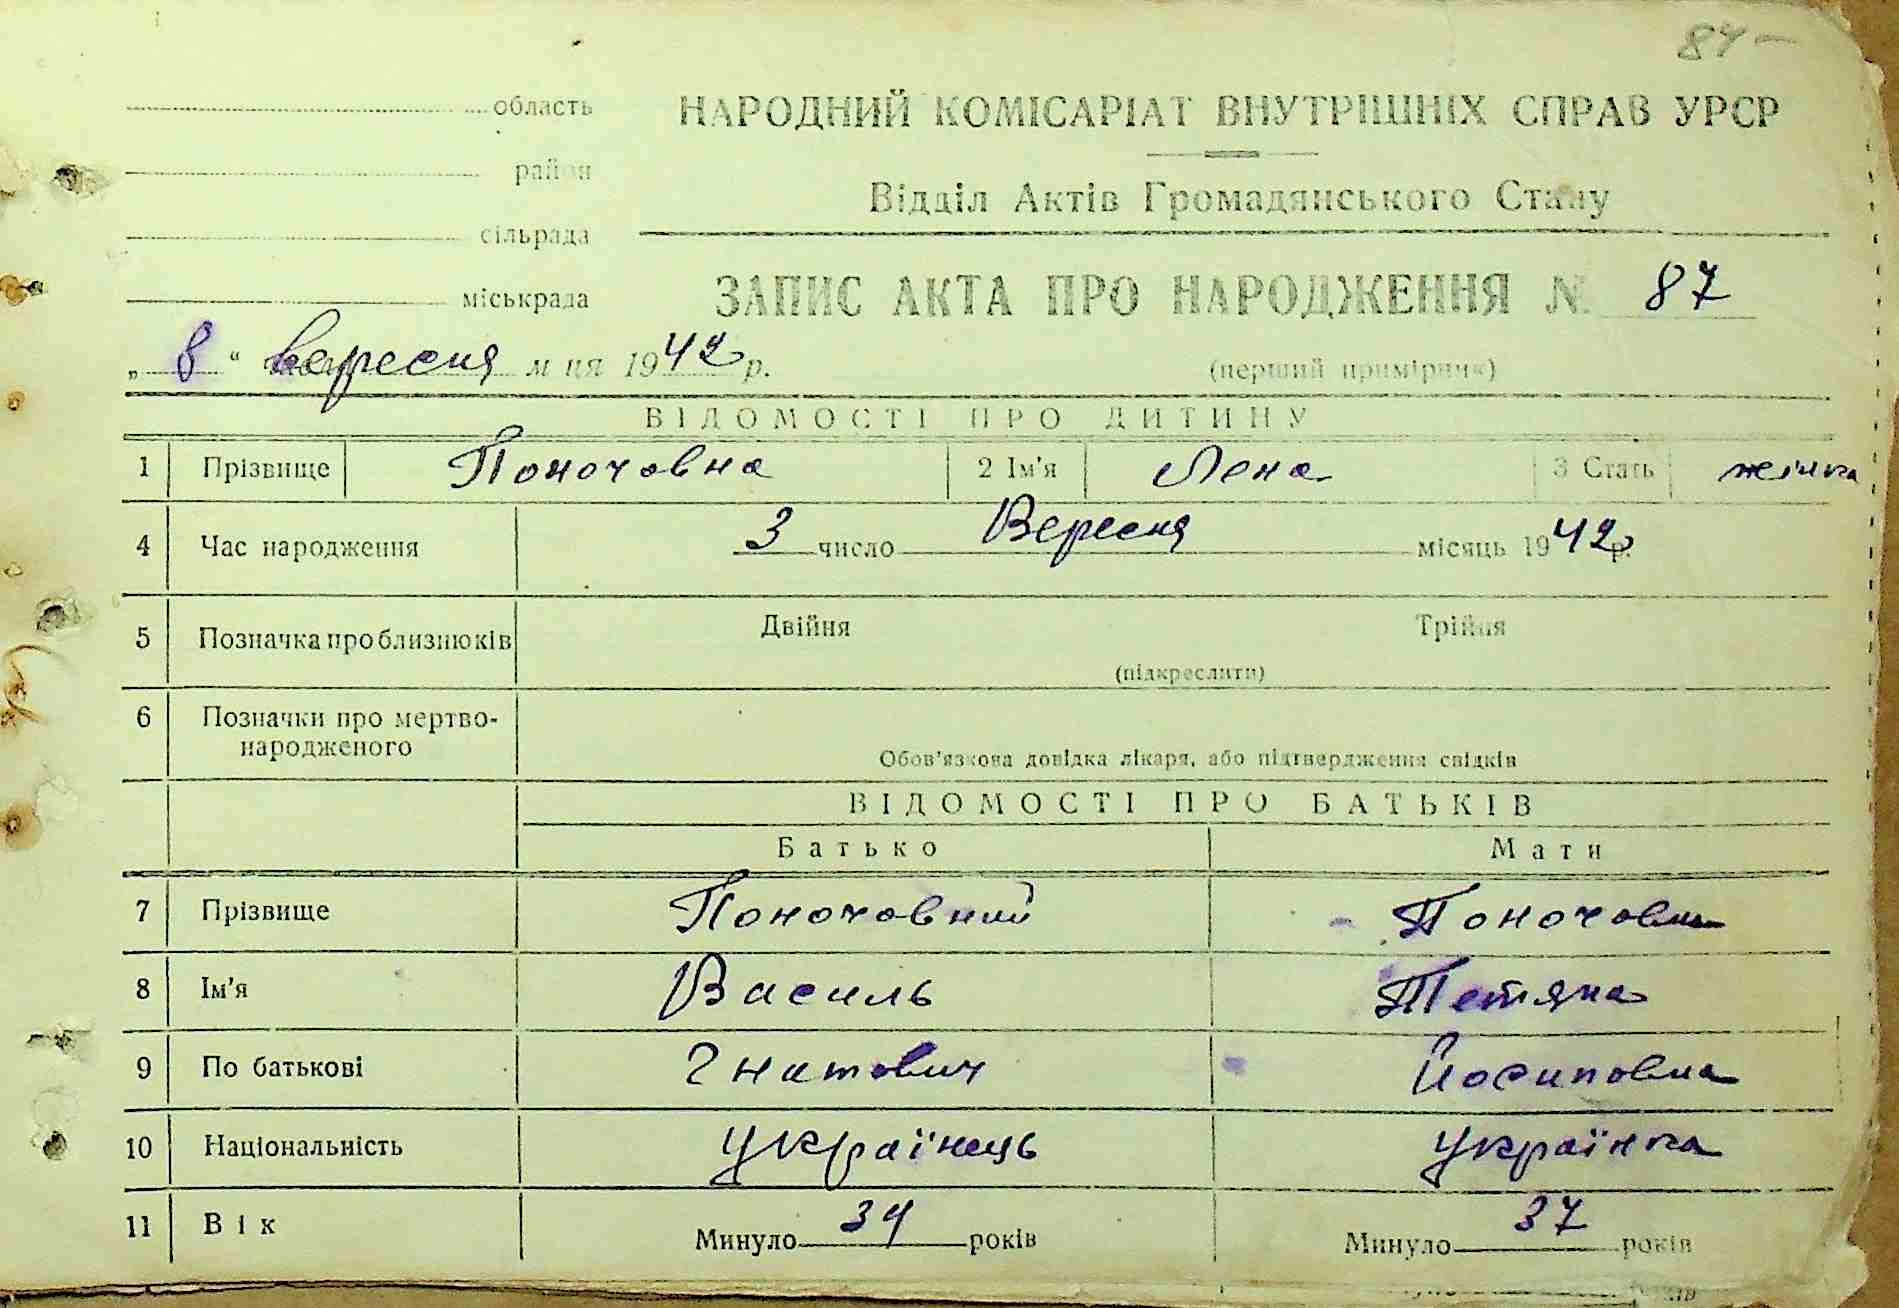 84 —
область
НАРОДНИЙ КОМІСАРІАТ ВНУТРІШНІХ СПРАВ УРСР
район
Відділ Актів Громадянського Стану
сільрада
міськрада
ЗАПИС АКТА ПРО НАРОДЖЕННЯ № 87
„ 8 “ вересня м ця 1942 р.
(перший примірник)
ВІДОМОСТІ ПРО ДИТИНУ
1 Прізвище Поночовна 2 Ім'я Лена 3 Стать жінка
4 Час народження 3 число Вересня місяць 1942 р.
5 Позначка про близнюків Двійня Трійня
(підкреслити)
6 Позначки про мертво-
народженого
Обов'язкова довідка лікаря, або підтвердження свідків
ВІДОМОСТІ ПРО БАТЬКІВ
Батько Мати
7 Прізвище Поночовний Поночовна
8 Ім'я Василь Тетяна
9 По батькові Гнатович Йосиповна
10 Національність Українець Українка
11 Вік Минуло 34 років Минуло 37 років